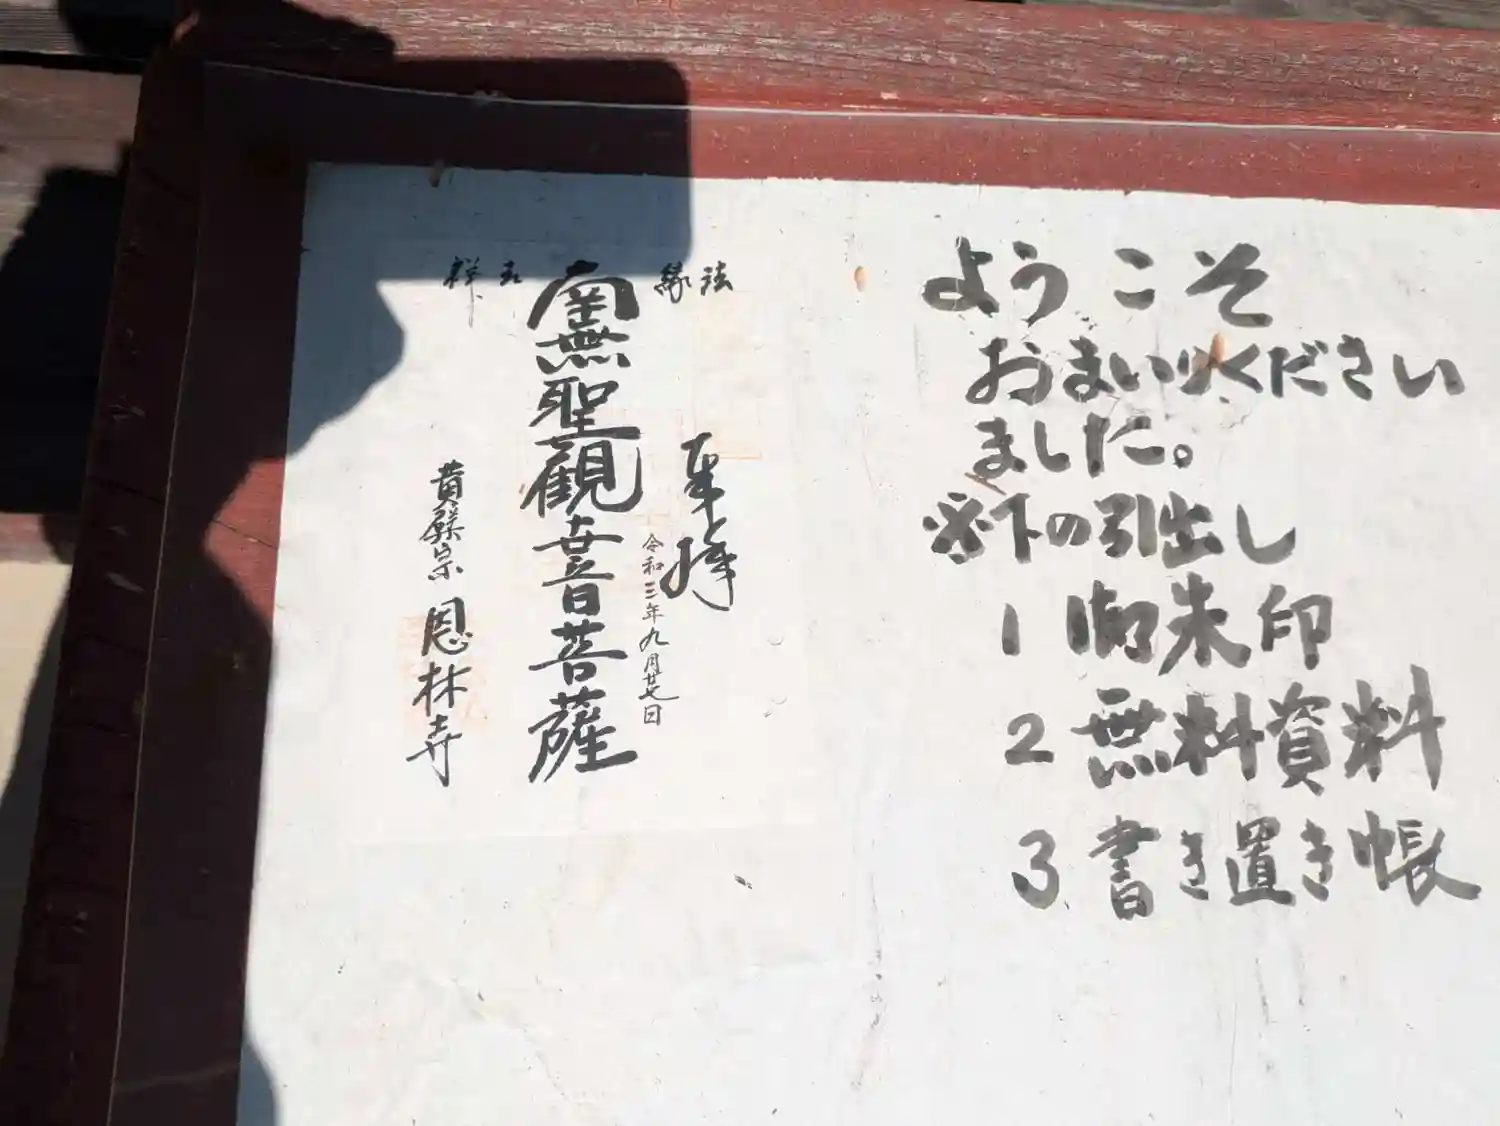 ようこそ
おまいりくださいい
ました。
※下の引出し
1 御朱印
2 無料資料
3 書き置き帳
法縁
吉祥
奉拝
令和三年九月廿七日
南無聖観世音菩薩
黄檗宗 恩林寺